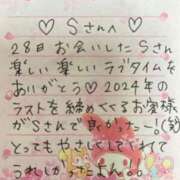 ♡Sさんへ♡
28日お会いしたSさん
楽しい楽しいラブタイムを
ありがとう♡2024年の
ラストを締めくくるお客様
がSさんで良かったー!(笑)
とってもやさしくしてくれて
うれしかったよん。。